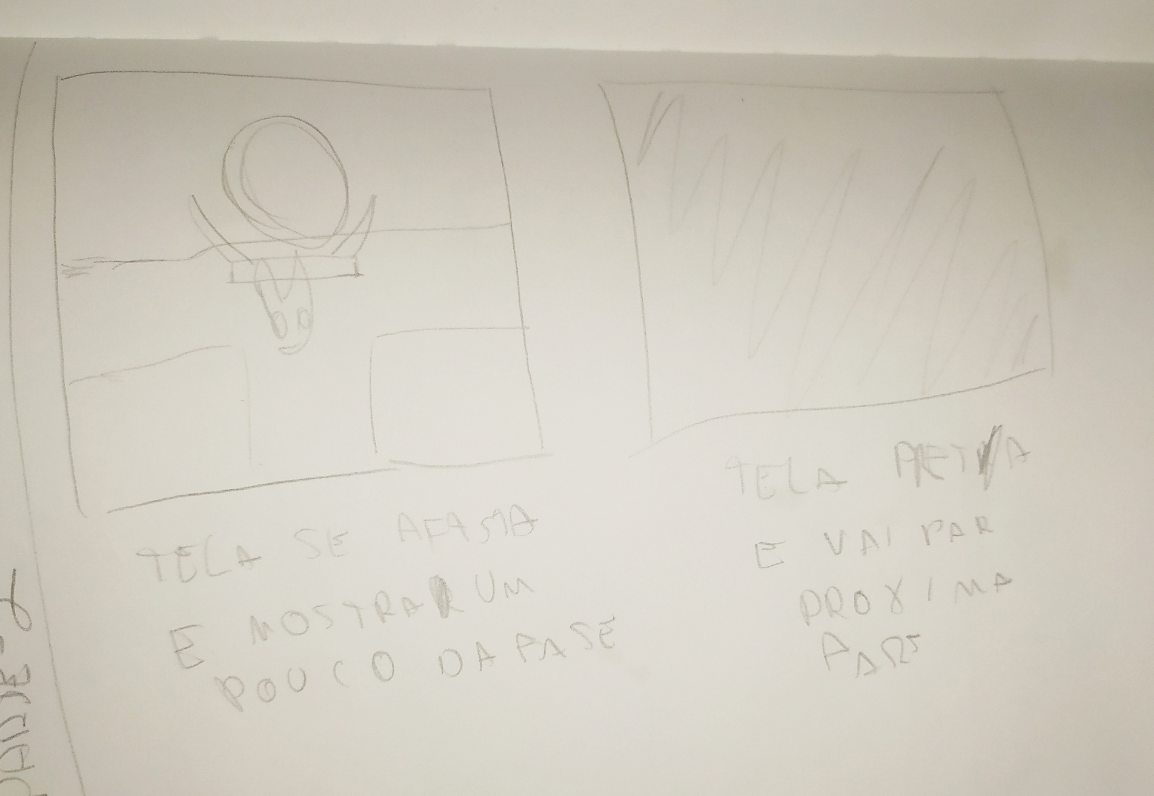 TELA SE AFASTA
E MOSTRAR UM
POUCO DA FASE
TELA PRETA
E VAI PAR
PROXIMA
PART